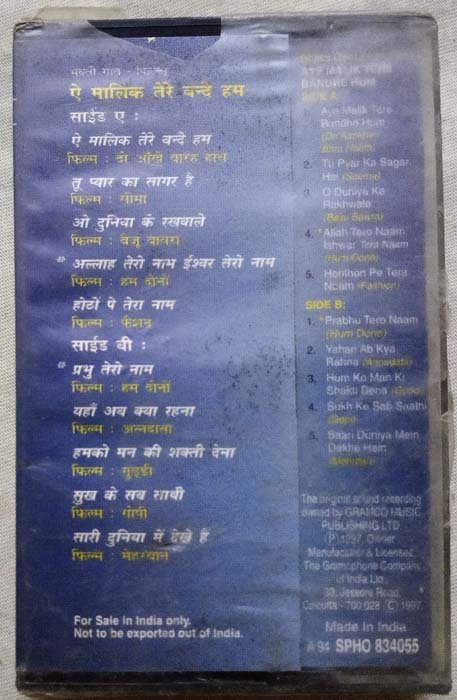 भक्ती गीत - फिल्म
ऐ मालिक तेरे बन्दे हम
साईड ए :
ऐ मालिक तेरे बन्दे हम
फिल्म : दो आँखे बारह हाथ
तू प्यार का सागर है
फिल्म : सीमा
ओ दुनिया के रखवाले
फिल्म : बैजू बावरा
* अल्लाह तेरो नाम ईश्वर तेरो नाम
फिल्म : हम दोनों
होठों पे तेरा नाम
फिल्म : फैशन
साईड बी :
* प्रभु तेरो नाम
फिल्म : हम दोनों
यहाँ अब क्या रहना
फिल्म : अन्नदाता
हमको मन की शक्ती देना
फिल्म : गुड्डी
सुख के सब साथी
फिल्म : गोपी
सारी दुनिया में देखे हैं
फिल्म : मेहरबान
For Sale in India only.
Not to be exported out of India.
AYE MALIK TERE
BANDHE HUM
SIDE A
1. Aye Malik Tere
Bandhe Hum
(Do Aankhen
Bara Haath)
2. Tu Pyar Ka Sagar
Hai (Seema)
3. O Duniya Ke
Rakhwale
(Baiju Bawra)
4. *Allah Tero Naam
Ishwar Tera Naam
(Hum Dono)
5. Honthon Pe Tera
Naam (Fashion)
SIDE B:
1. *Prabhu Tero Naam
(Hum Dono)
2. Yahan Ab Kya
Rahna (Annadata)
3. Hum Ko Man Ki
Shakti Dena
4. Sukh Ke Sab Saathi
(Gopi)
5. Saari Duniya Mein
Dekhe Hain
The original sound recording
owned by GRAMCO MUSIC
PUBLISHING LTD.
(P) 1997, Owner
Manufacturer & Licensee,
The Gramophone Company
of India Ltd.
33, Jessore Road,
Calcutta - 700 028 © 1997.
Made in India
A 94 SPHO 834055